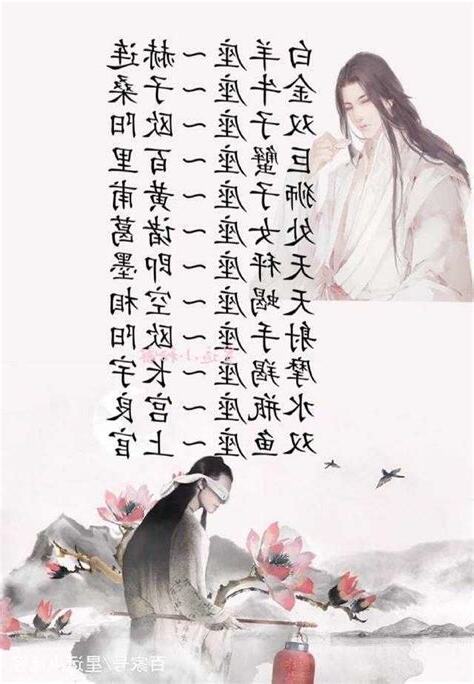 白羊座一赫连
金牛座一子桑
双子座一欧阳
巨蟹座一百里
狮子座一黄甫
处女座一诸葛
天秤座一即墨
天蝎座一空相
射手座一欧阳
摩羯座一长宇
水瓶座一宫良
双鱼座一上官
百家号/星运